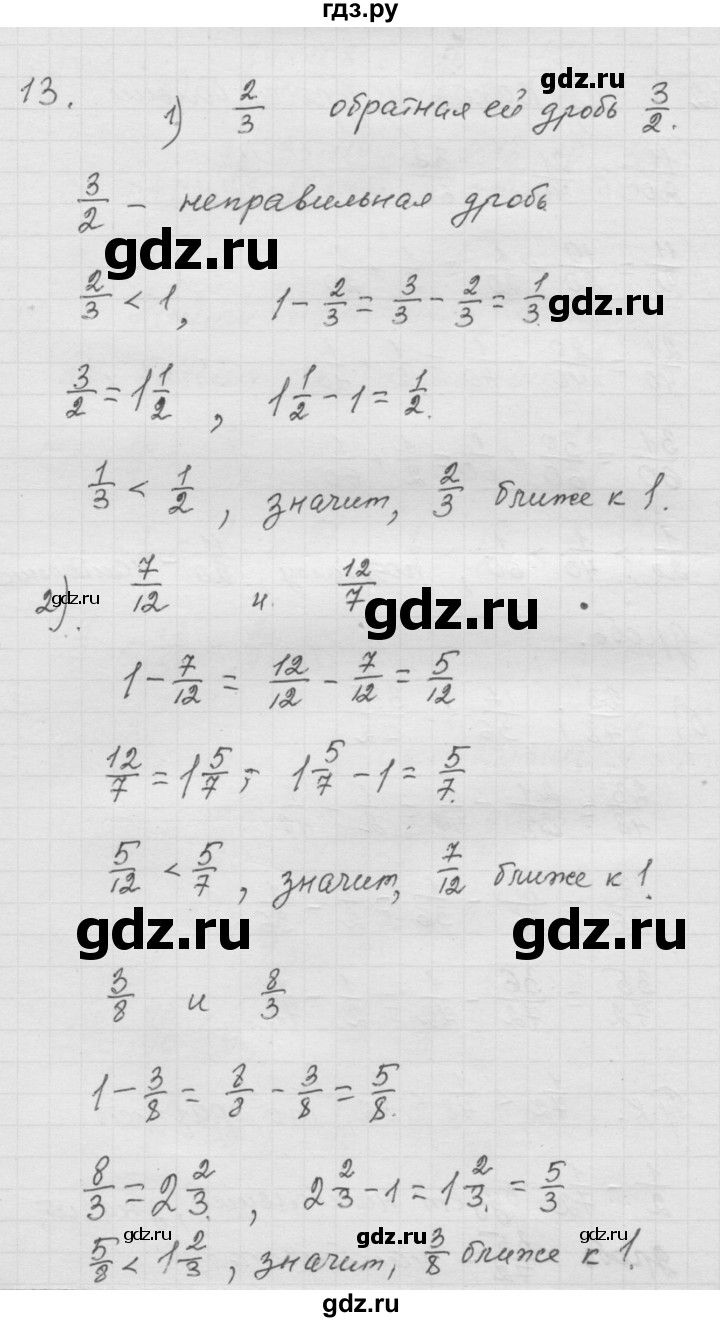 гдз.ру
gdz.ru
13. 1) 2/3 обратная ей дробь 3/2.
3/2 – неправильная дробь
gdz.ru
2/3 < 1, 1 - 2/3 = 3/3 - 2/3 = 1/3.
gdz.ru
3/2 = 1 1/2, 1 1/2 - 1 = 1/2.
1/3 < 1/2, значит, 2/3 ближе к 1.
2) 7/12 и 12/7.
gdz.ru
gdz.ru
1 - 7/12 = 12/12 - 7/12 = 5/12
12/7 = 1 5/7; 1 5/7 - 1 = 5/7.
5/12 < 5/7, значит, 7/12 ближе к 1.
gdz.ru
gdz.ru
3/8 и 8/3
1 - 3/8 = 8/8 - 3/8 = 5/8.
8/3 = 2 2/3, 2 2/3 - 1 = 1 2/3. = 5/3
gdz.ru
gdz.ru
gdz.ru
5/8 < 1 2/3, значит, 3/8 ближе к 1.
gdz.ru